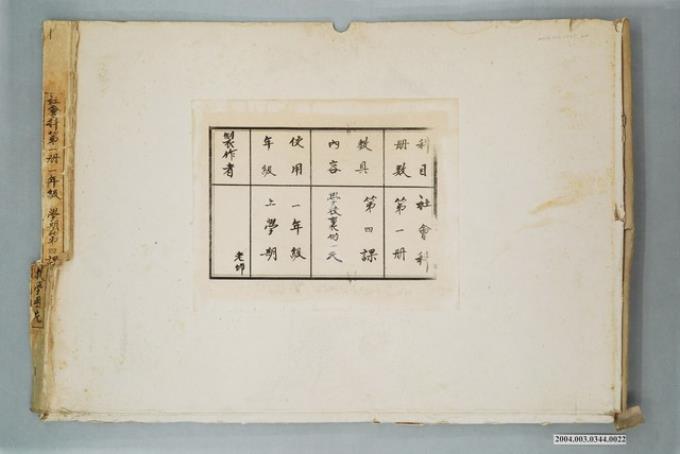 科目 社會科
册數 第一册
教具 第四課
內容 學校裏的一天
使用 一年級
年級 上學期
製作者 老師
社會科第一册 一年級 學期第四課
2004.003.0344.0022